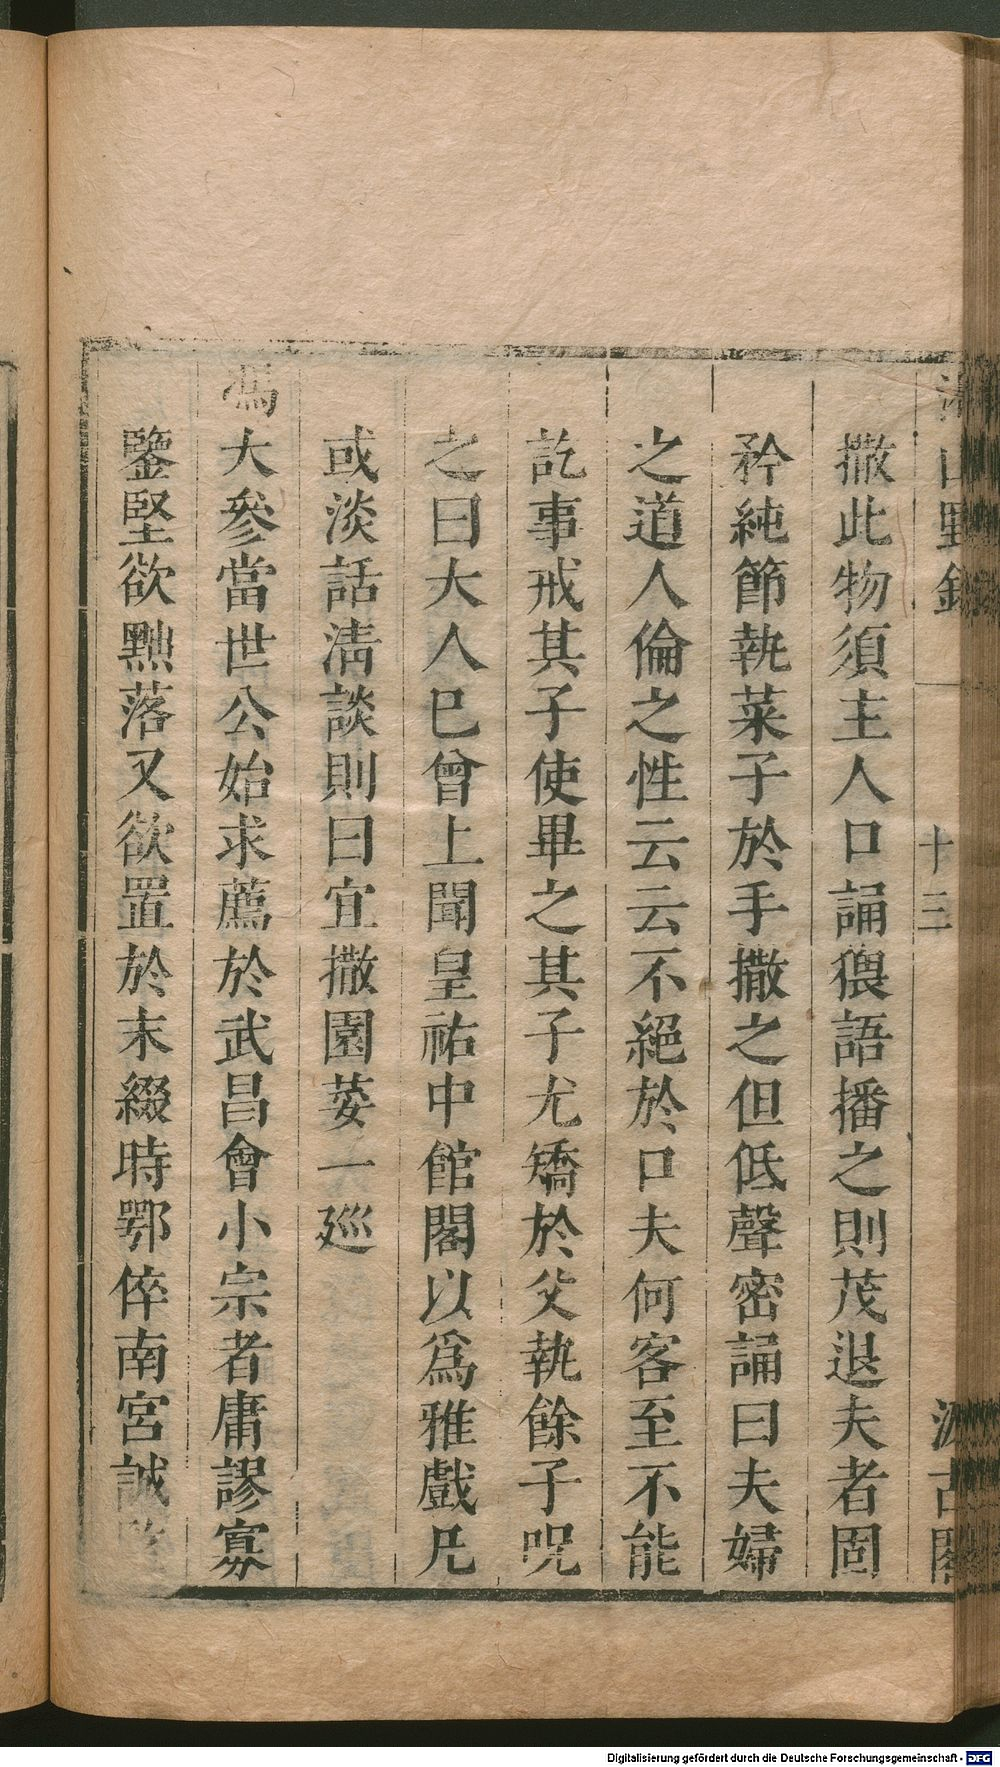 山野錄
十三
汲古閣
撒此物須主人口誦猥語播之則茂退夫者固
矜純節執菜子於手撒之但低聲密誦曰夫婦
之道人倫之性云云不絕於口夫何客至不能
訖事戒其子使畢之其子尤矯於父執餘子呪
之曰大人已曾上聞皇祐中館閣以爲雅戲凡
或淡話淸談則曰宜撒園荽一廵
馮大參當世公始求薦於武昌會小宗者庸謬寡
鑒堅欲黜落又欲置於末綴時鄂倅南宮誠
Digitalisierung gefördert durch die Deutsche Forschungsgemeinschaft - DFG